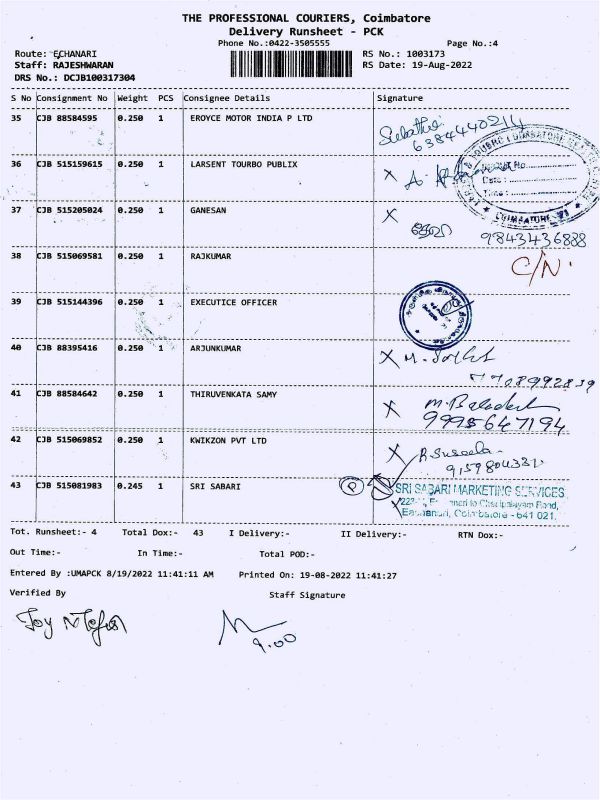 THE PROFESSIONAL COURIERS, Coimbatore
Delivery Runsheet - PCK
Phone No.:0422-3505555 Page No.:4
Route: ECHANARI RS No.: 1003173
Staff: RAJESHWARAN RS Date: 19-Aug-2022
DRS No.: DCJB100317304
S No Consignment No Weight PCS Consignee Details Signature
35 CJB 88584595 0.250 1 EROYCE MOTOR INDIA P LTD
6384440214
36 CJB 515159615 0.250 1 LARSENT TOURBO PUBLIX
Date:
Time:
COIMBATORE
37 CJB 515205024 0.250 1 GANESAN
9843436888
38 CJB 515069581 0.250 1 RAJKUMAR C/N.
39 CJB 515144396 0.250 1 EXECUTICE OFFICER
40 CJB 88395416 0.250 1 ARJUNKUMAR
7708992839
41 CJB 88584642 0.250 1 THIRUVENKATA SAMY
9995647194
42 CJB 515069852 0.250 1 KWIKZON PVT LTD R.Suseela
43 CJB 515081983 0.245 1 SRI SABARI P SRI SABARI MARKETING SERVICES
Road,
Eachanari, Coimbatore - 641 021.
Tot. Runsheet:- 4 Total Dox:- 43 I Delivery:- II Delivery:- RTN Dox:-
Out Time:- In Time:- Total POD:-
Entered By :UMAPCK 8/19/2022 11:41:11 AM Printed On: 19-08-2022 11:41:27
Verified By Staff Signature
9.00